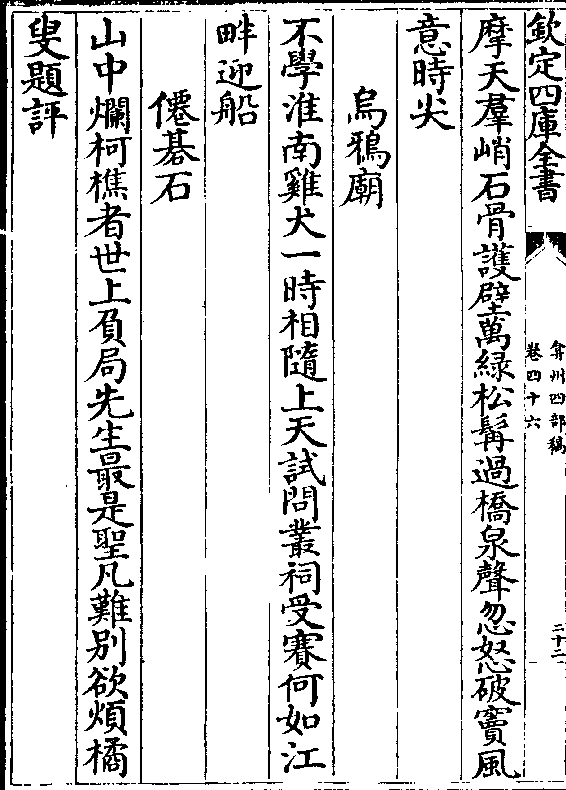 欽定四庫全書
弇州四部稿
卷四十六
二十二
摩天羣峭石骨護壁萬綠松髯過橋泉聲忽怒破竇風
意時尖
烏鴉廟
不學淮南雞犬一時相隨上天試問叢祠受賽何如江
畔迎船
僊碁石
山中爛柯樵者世上負局先生最是聖凡難別欲煩橘
叟題評